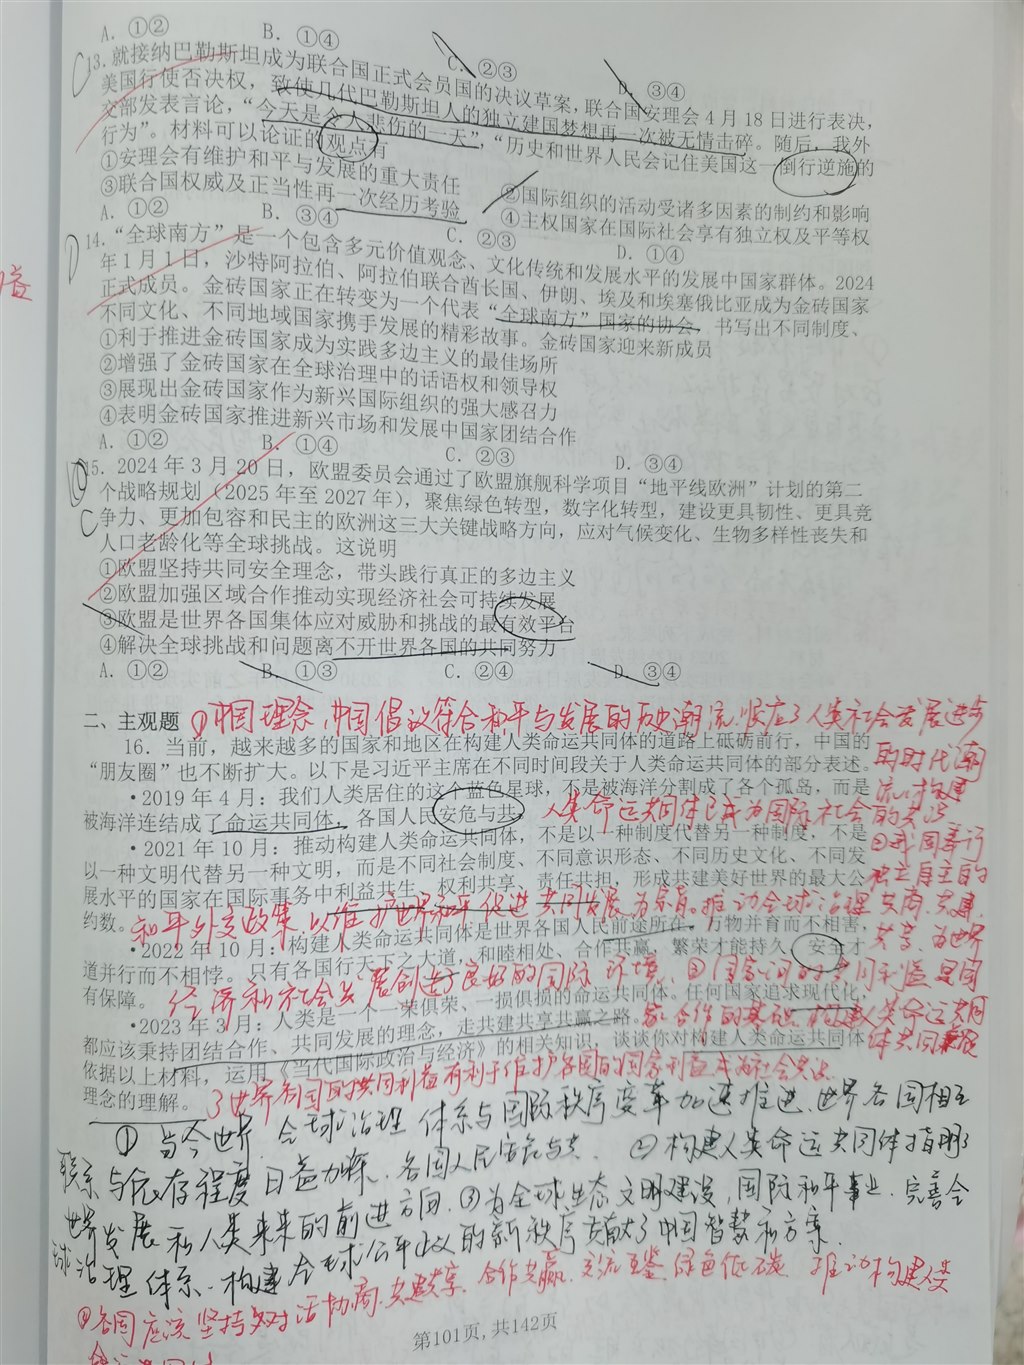 A. ①② B. ①④ C. ②③ D. ③④
C
13. 就接纳巴勒斯坦成为联合国正式会员国的决议草案，联合国安理会 4 月 18 日进行表决，
美国行使否决权，致使几代巴勒斯坦人的独立建国梦想再一次被无情击碎。随后，我外
交部发表言论，“今天是令人悲伤的一天”，“历史和世界人民会记住美国这一倒行逆施的
行为”。材料可以论证的观点有
①安理会有维护和平与发展的重大责任 ②国际组织的活动受诸多因素的制约和影响
③联合国权威及正当性再一次经历考验 ④主权国家在国际社会享有独立权及平等权
A. ①② B. ③④ C. ②③ D. ①④
D
14. “全球南方”是一个包含多元价值观念、文化传统和发展水平的发展中国家群体。2024
年 1 月 1 日，沙特阿拉伯、阿拉伯联合酋长国、伊朗、埃及和埃塞俄比亚成为金砖国家
正式成员。金砖国家正在转变为一个代表“全球南方”国家的协会，书写出不同制度、
不同文化、不同地域国家携手发展的精彩故事。金砖国家迎来新成员
①利于推进金砖国家成为实践多边主义的最佳场所
②增强了金砖国家在全球治理中的话语权和领导权
③展现出金砖国家作为新兴国际组织的强大感召力
④表明金砖国家推进新兴市场和发展中国家团结合作
A. ①② B. ①④ C. ②③ D. ③④
15. 2024 年 3 月 20 日，欧盟委员会通过了欧盟旗舰科学项目“地平线欧洲”计划的第二
个战略规划（2025 年至 2027 年），聚焦绿色转型，数字化转型，建设更具韧性、更具竞
C
争力、更加包容和民主的欧洲这三大关键战略方向，应对气候变化、生物多样性丧失和
人口老龄化等全球挑战。这说明
①欧盟坚持共同安全理念，带头践行真正的多边主义
②欧盟加强区域合作推动实现经济社会可持续发展
③欧盟是世界各国集体应对威胁和挑战的最有效平台
④解决全球挑战和问题离不开世界各国的共同努力
A. ①② B. ①③ C. ②④ D. ③④
二、主观题 ①中国理念，中国倡议符合和平与发展的历史潮流，顺应了人类社会发展进步
16. 当前，越来越多的国家和地区在构建人类命运共同体的道路上砥砺前行，中国的
的时代潮
“朋友圈”也不断扩大。以下是习近平主席在不同时间段关于人类命运共同体的部分表述。
流，构建
•2019 年 4 月：我们人类居住的这个蓝色星球，不是被海洋分割成了各个孤岛，而是
被海洋连结成了命运共同体，各国人民安危与共。
人类命运共同体已成为国际社会的共识
•2021 年 10 月：推动构建人类命运共同体，不是以一种制度代替另一种制度，不是
②我国奉行
以一种文明代替另一种文明，而是不同社会制度、不同意识形态、不同历史文化、不同发
独立自主的
展水平的国家在国际事务中利益共生、权利共享、责任共担，形成共建美好世界的最大公
约数。
和平外交政策，以维护世界和平促进共同发展为宗旨。推动全球治理共商，共建，
•2022 年 10 月：构建人类命运共同体是世界各国人民前途所在。万物并育而不相害，
共享，为世界
道并行而不相悖。只有各国行天下之大道，和睦相处、合作共赢，繁荣才能持久，安全才
有保障。
经济和社会发展创造了良好的国际环境，③国家间的共同利益是国
•2023 年 3 月：人类是一个一荣俱荣、一损俱损的命运共同体。任何国家追求现代化，
家合作的基础，构建人类命运共同
都应该秉持团结合作、共同发展的理念，走共建共享共赢之路。
依据以上材料，运用《当代国际政治与经济》的相关知识，谈谈你对构建人类命运共同体
理念的理解。
世界各国的共同利益有利于维护各国的国家利益成为社会共识
① 当今世界，全球治理体系与国际秩序变革加速推进，世界各国相互
联系与依存程度日益加深，各国人民安危与共. ②构建人类命运共同体指明了
世界发展和人类未来的前进方向. ③为全球生态文明建设，国际和平事业，完善全
球治理体系，构建全球公平正义的新秩序贡献了中国智慧和方案.
④各国应该坚持对话协商，共建共享，合作共赢，交流互鉴，绿色低碳，推动构建人类
第101页，共142页
命运共同体
益